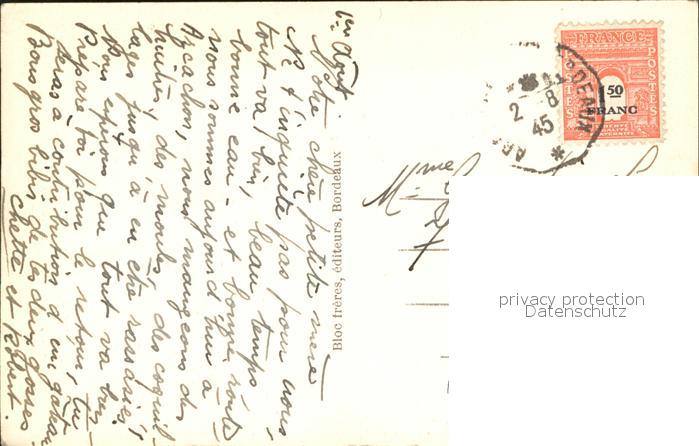 1er Août.
Notre chère petite mère
Ne t'inquiète pas pour nous,
tout va bien, beau temps,
bonne eau - et bonne route
nous sommes aujourd'hui à
Arcachon, nous mangeons des
huîtres, des moules, des coquil-
lages jusqu'à en être rassasiés,
Nous espérons que tout va bien
Prépare toi pour le retour, tu
seras à contribution d'un gâteau
Bons gros bibis de tes deux gosses
Chette et Robert.
Bloc frères, éditeurs, Bordeaux
Mme
FRANCE
POSTES
POSTES
1 50
FRANC
LIBERTÉ
EGALITÉ
FRATERNITÉ
BORDEAUX
2 - 8
45
privacy protection
Datenschutz